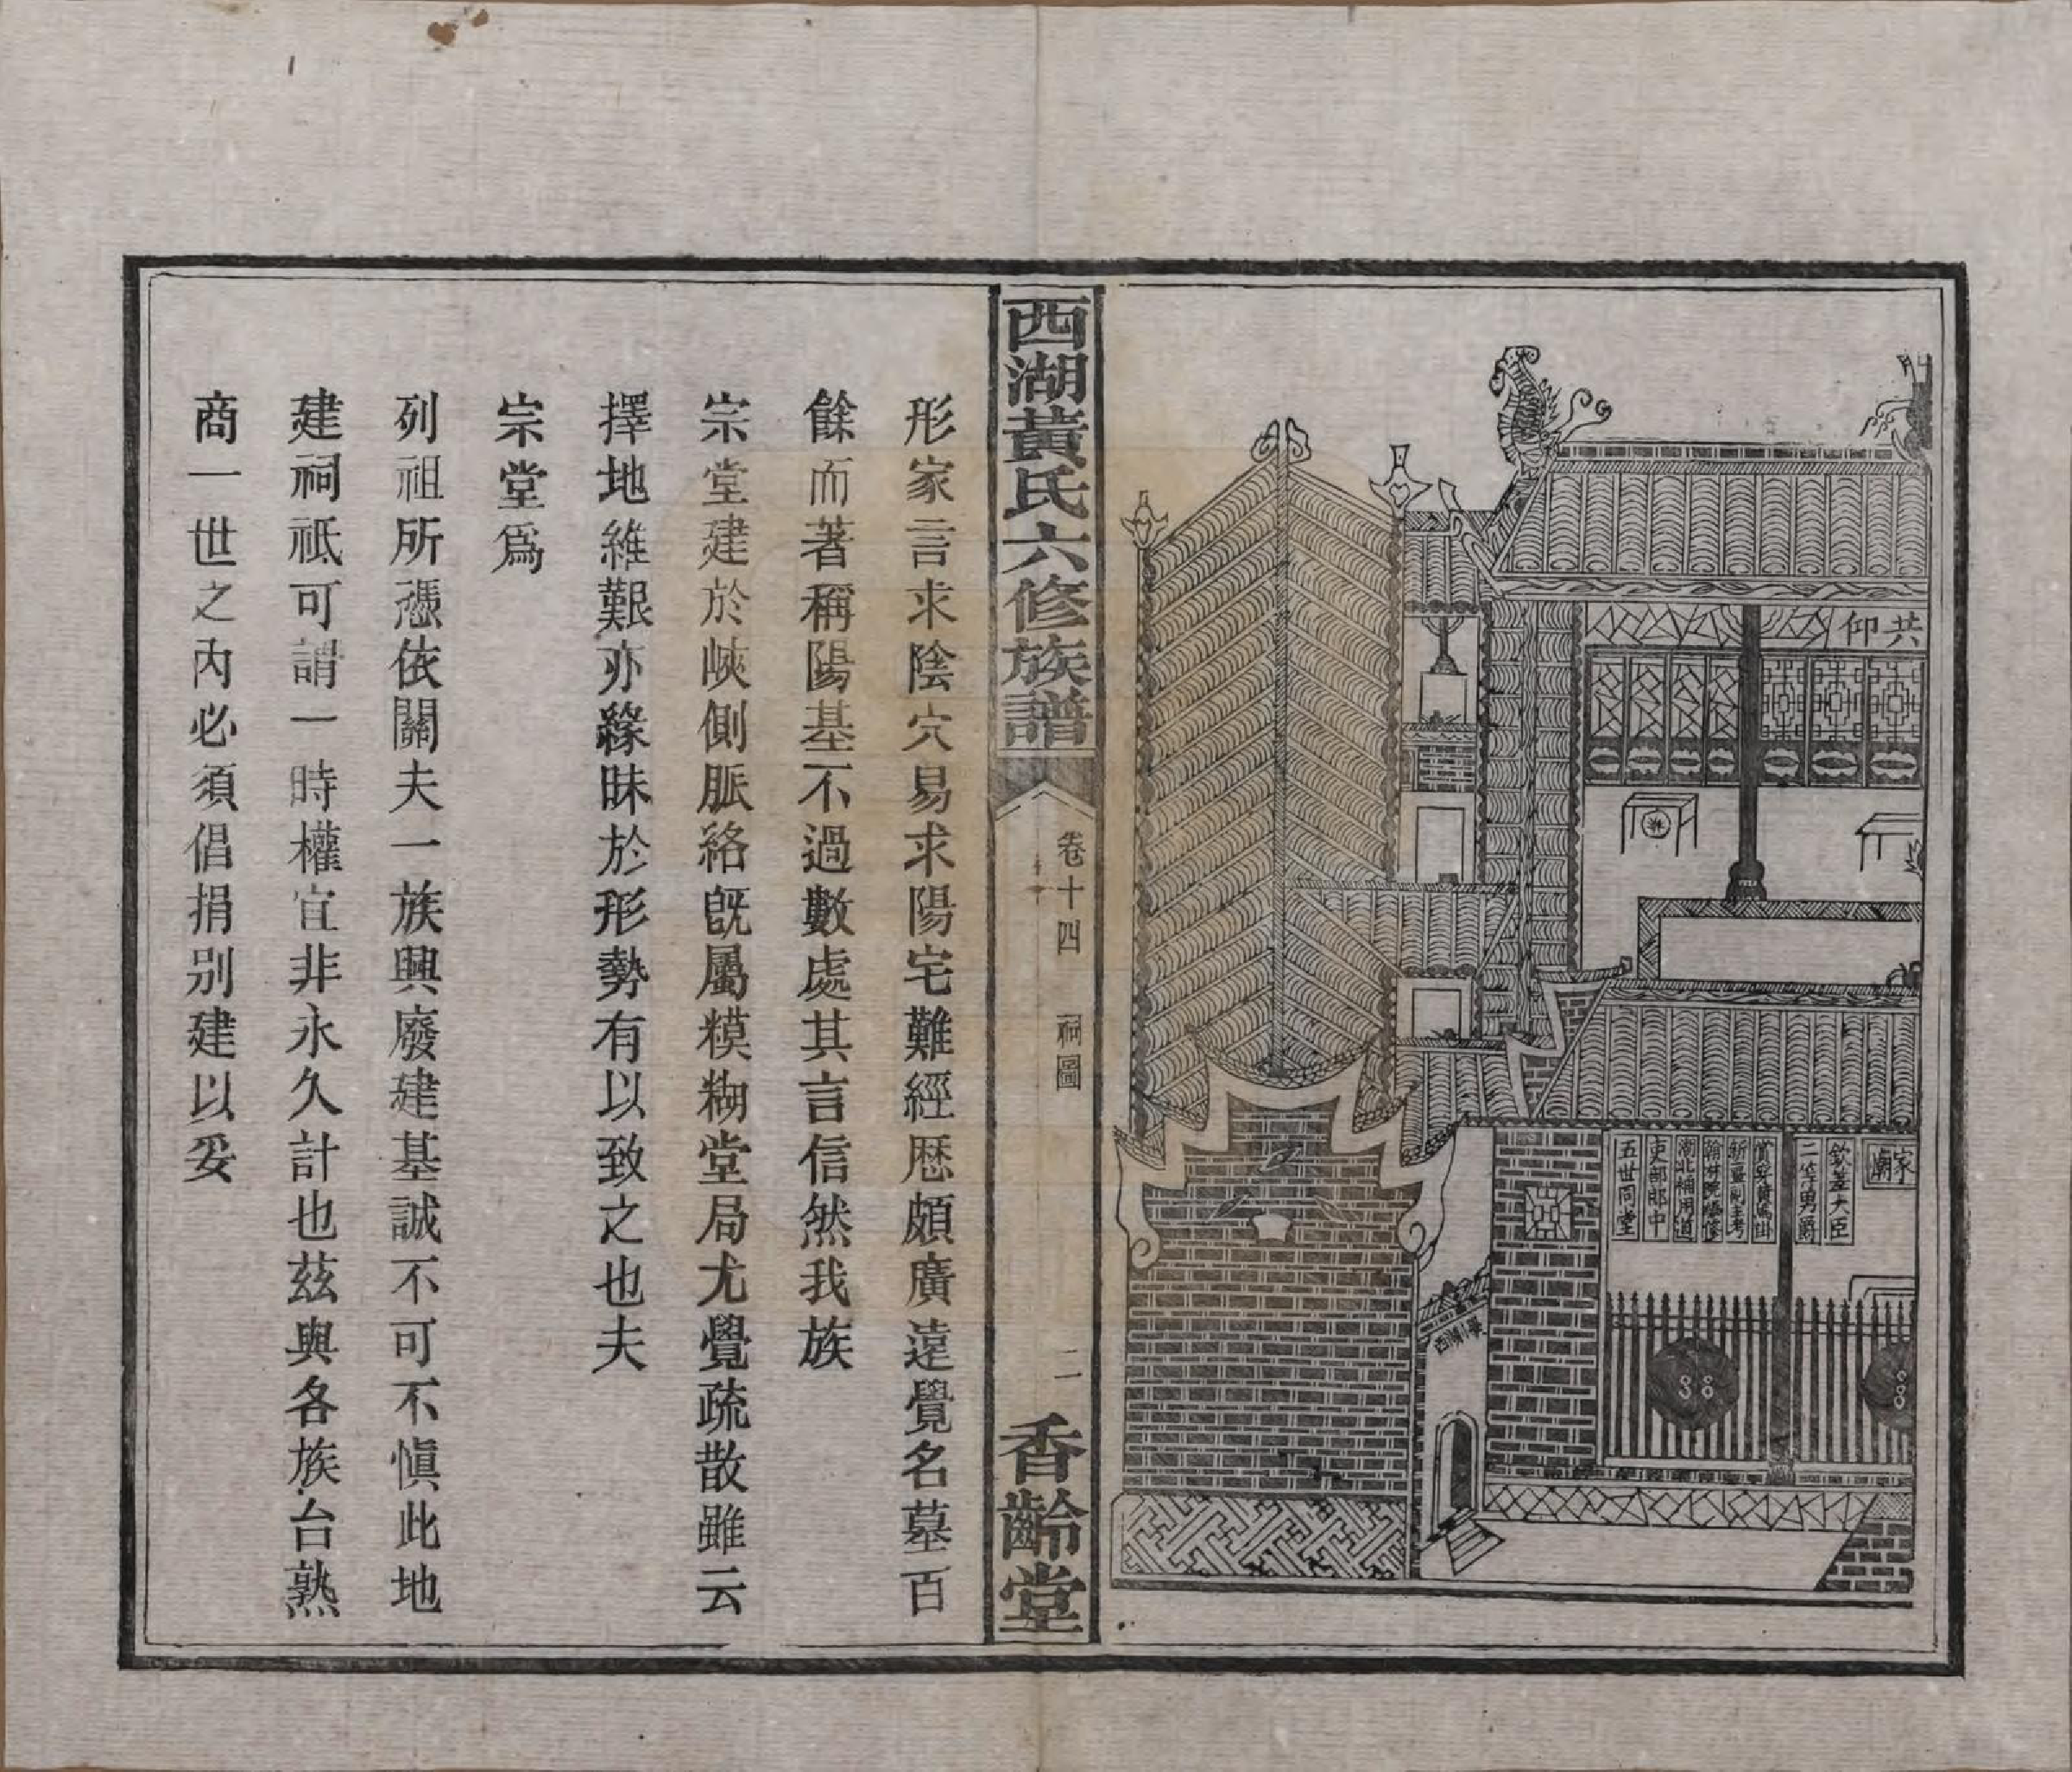 共仰
家廟
欽差大臣
二等男爵
賞穿黃馬褂
新疆副主考
翰林院編修
湖北補用道
吏部郎中
五世同堂
西湖
西湖黃氏六修族譜
卷十四
祠圖
二
香齡堂
形家言求陰穴易求陽宅難經歷頗廣遠覺名墓百
餘而著稱陽基不過數處其言信然我族
宗堂建於峽側脈絡旣屬糢糊堂局尤覺疏散雖云
擇地維艱亦緣昧於形勢有以致之也夫
宗堂爲
列祖所憑依關夫一族興廢建基誠不可不愼此地
建祠祗可謂一時權宜非永久計也茲與各族台熟
商一世之內必須倡捐別建以妥